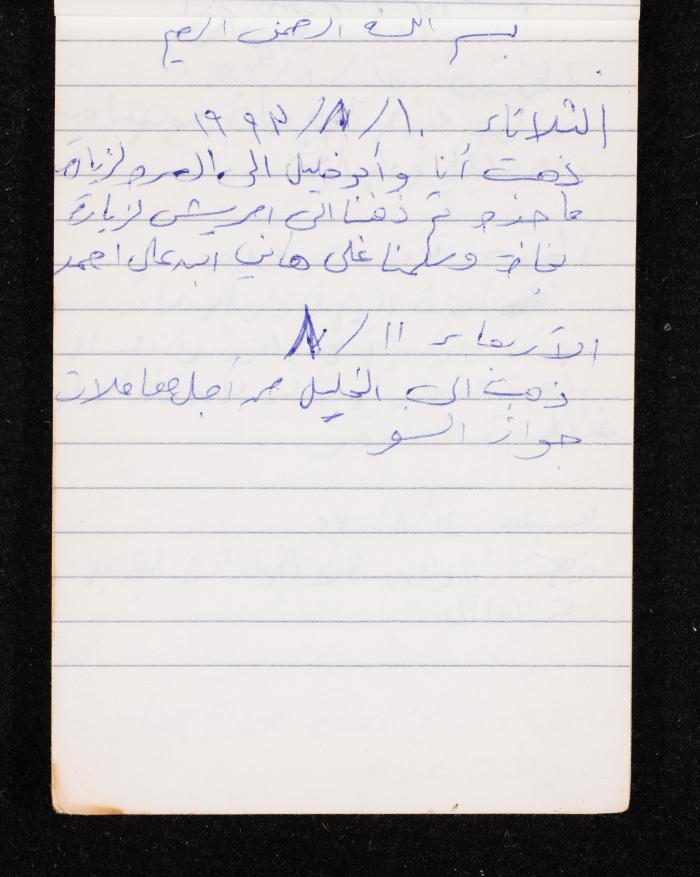 بسم الله الرحمن الرحيم
الثلاثاء ١٠/٨/١٩٩٣
ذهبت أنا وأبو خليل الى لزيارة
ثم ذهبنا الى امريش لزيارة
وسلمنا على هاني ابن علي احمد
الأربعاء ١١/٨
ذهبت الى الخليل من أجل معاملات
جواز السفر